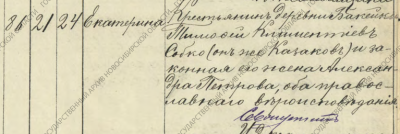 86 21 24 Екатерина Крестьянинъ деревни
Тимофей Климентіев
Собко (онъ же Казаков) и за-
конная его жена Алексан-
дра Петрова, оба право-
славнаго вѣроисповѣданія.